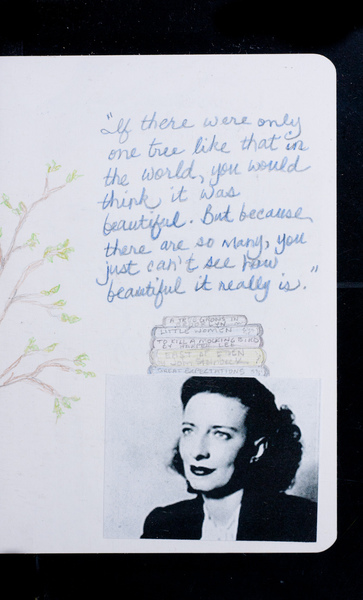 "If there were only
one tree like that in
the world, you would
think it was
beautiful. But because
there are so many, you
just can't see how
beautiful it really is."
A TREE GROWS IN
LITTLE WOMEN
TO KILL A MOCKING BIRD
BY HARPER LEE
EAST OF EDEN
GREAT EXPECTATIONS